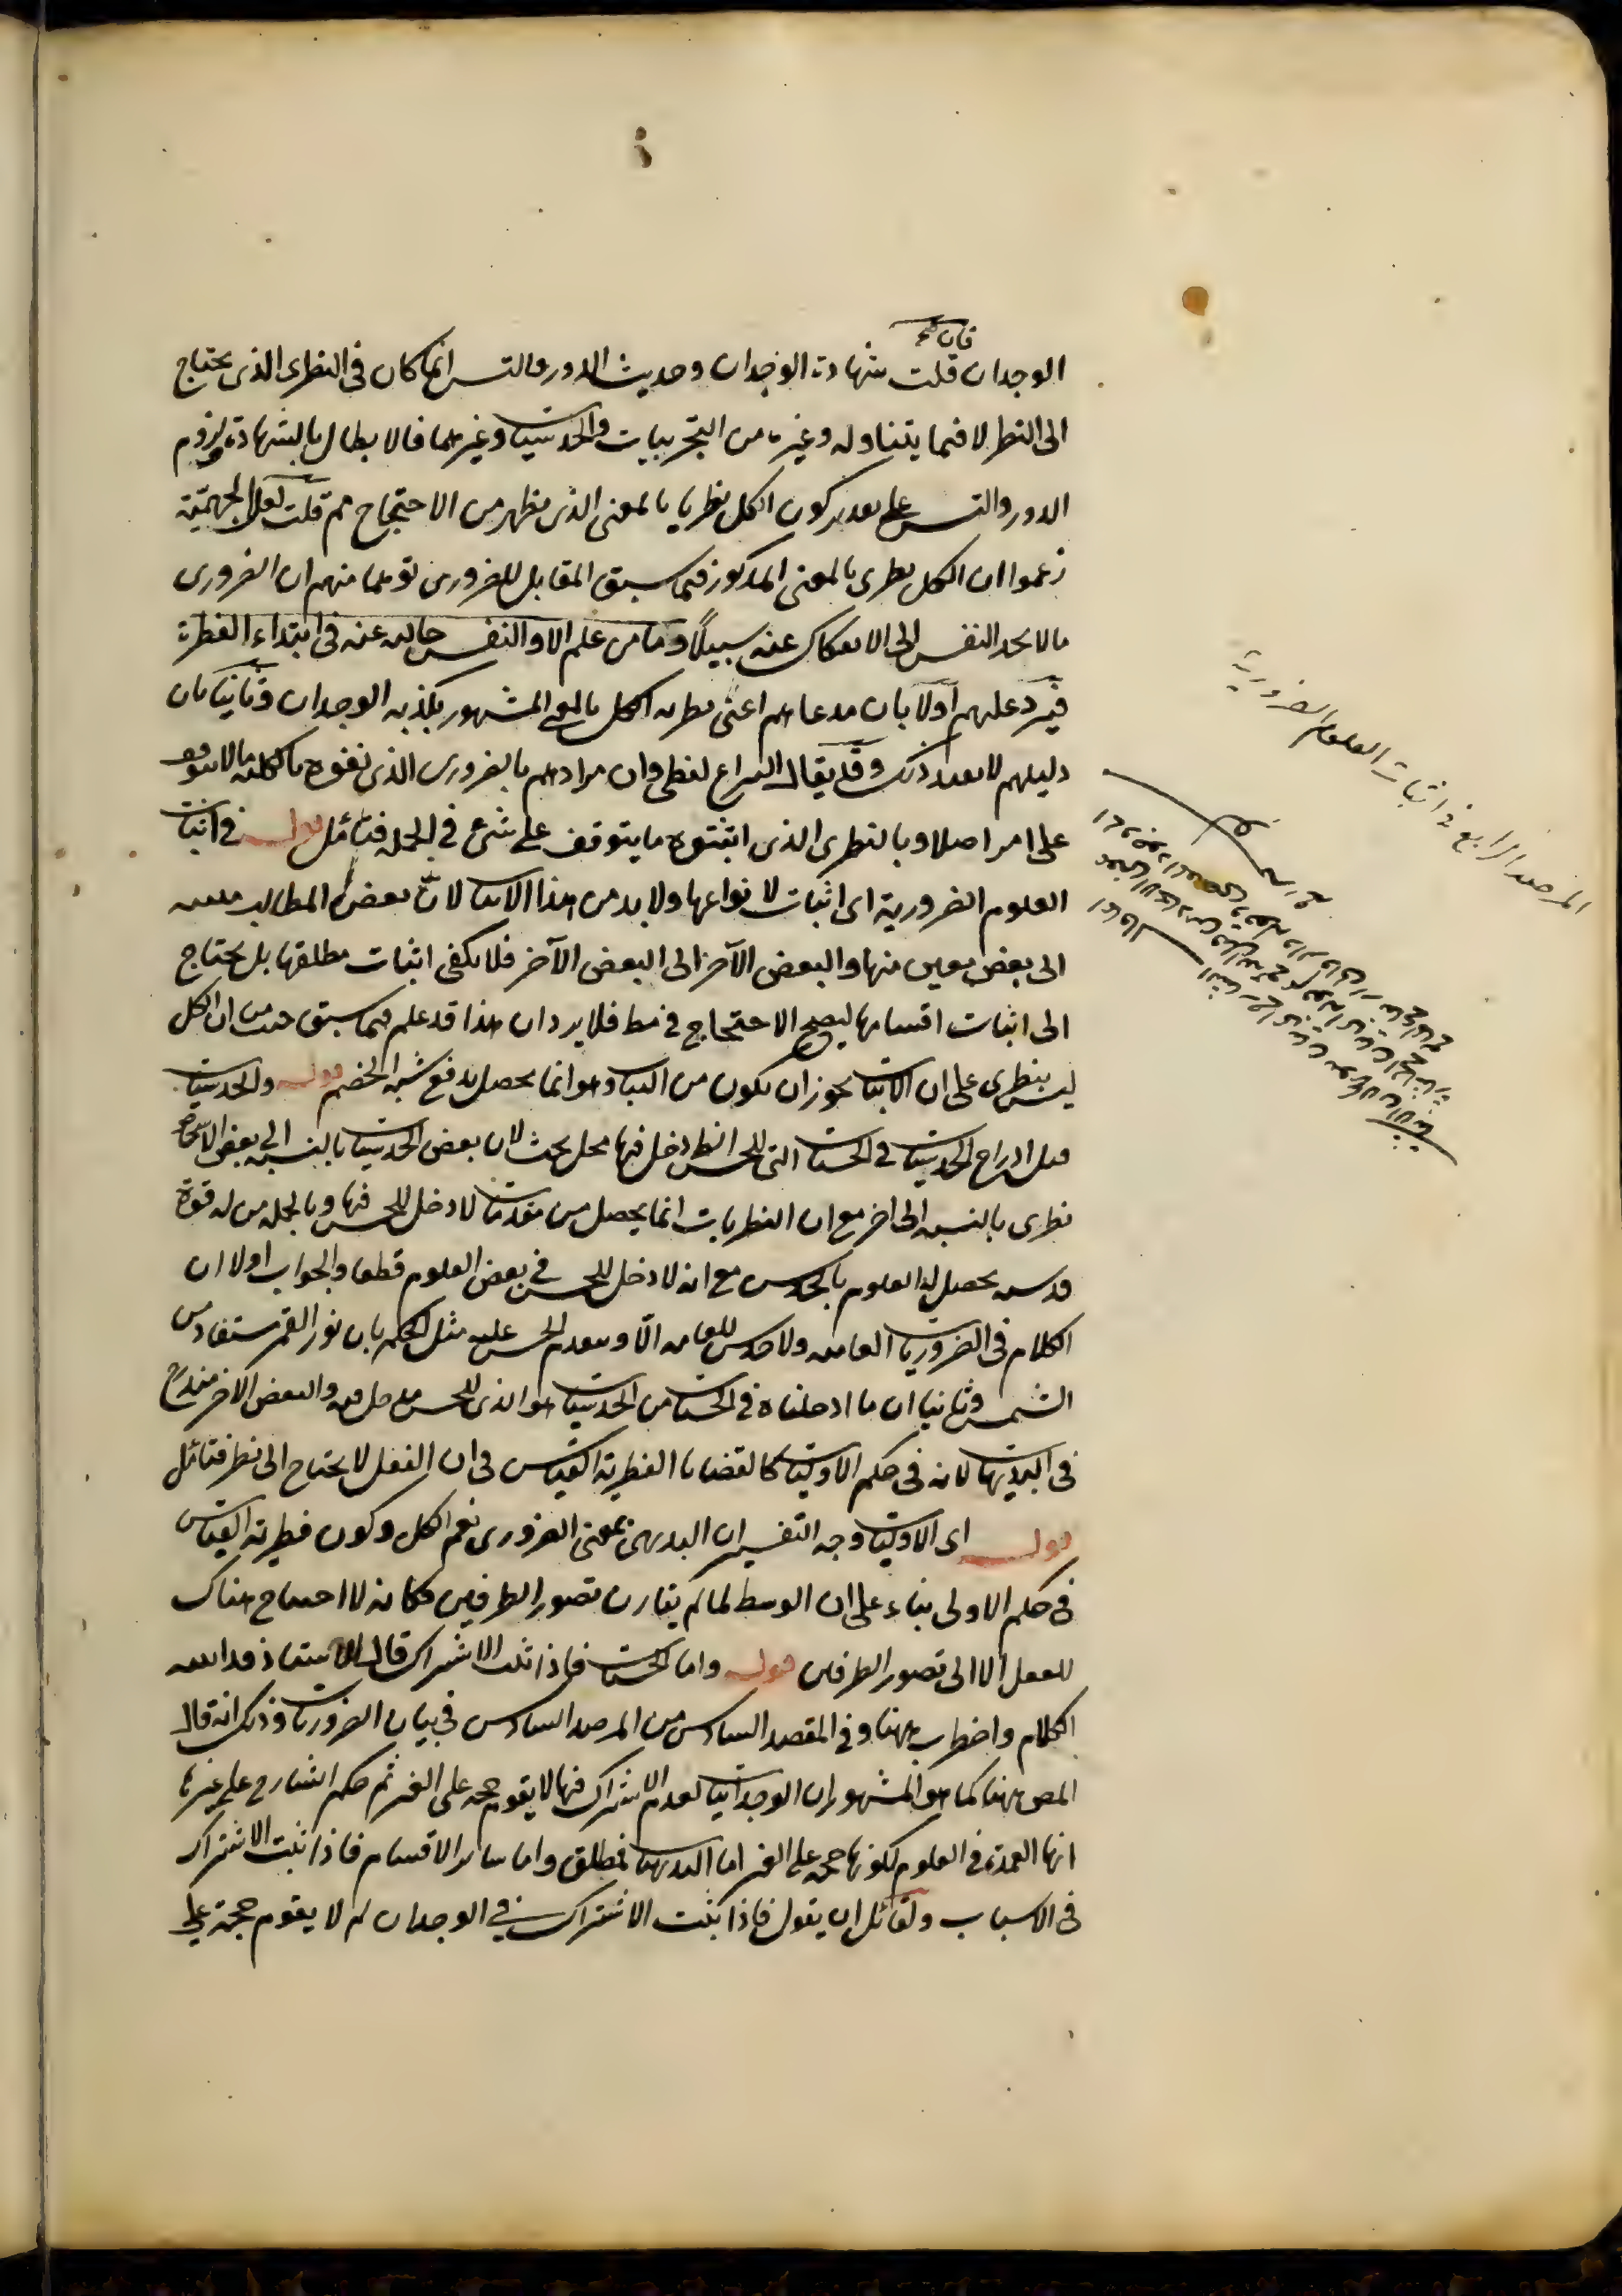 فان
الوجدان قلت شهادة الوجدان وحديث الدور والتس انما كان فى النظرى الذى يحتاج
الى النظر لا فيما يتناوله وغيره من التجربيات والحدسيات وغيرهما فالابطال بالشهادة ولزوم
الدور والتس على تقدير كون الكل نظريا بالمعنى الذى يظهر من الاحتجاج مم قلت لعل الجهمية
زعموا ان الكل نظرى بالمعنى المذكور فيما سبق المقابل للضرورى توهما منهم ان الضرورى
مالا يجد النفس الى الانفكاك عنه سبيلا وما من علم الا والنفس خالية عنه فى ابتداء الفطرة
فيرد عليهم اولا بان مدعاهم اعنى نظرية الكل بالمعنى المشهور يكذبه الوجدان وثانيا بان
دليلهم لا يفيد ذلك وقد يقال النزاع لفظى وان مرادهم بالضرورى الذى نفوه بالكلية مالا يتوقف
على امر اصلا وبالنظرى الذى اثبتوه ما يتوقف على شئ فى الجملة فتأمل قوله فى اثبات
العلوم الضرورية اى اثبات لانواعها ولابد من هذا الاثبات لان بعض المطالب منتسبة
الى بعض معين منها والبعض الآخر الى البعض الآخر فلا يكفى اثبات مطلقها بل يحتاج
الى اثبات اقسامها ليصح الاحتجاج فلا يرد ان هذا قد علم فيما سبق حيث بين ان الكل
ليس بنظرى على ان الاثبات يجوز ان يكون من الثبات وهو انما يحصل بدفع شبه الخصم قوله والحدسيات
قيل ادراج الحدسيات فى الحسيات التى للحس الظ دخل فيها محل بحث لان بعض الحدسيات بالنسبة الى بعض الاشخاص
نظرى بالنسبة الى اخر مع ان النظريات انما يحصل من مقدمات لا دخل للحس فيها وبالجملة من له قوة
قدسية يحصل له العلوم بالحدس مع انه لا دخل للحس فى بعض العلوم قطعا والجواب اولا ان
الكلام فى الضروريات العامة ولا حدس للعامة الا ويتقدم الحس عليه مثل الحكم بان نور القمر مستفاد من
الشمس وثانيا ان ما ادخلناه فى الحسيات من الحدسيات هو الذى للحس مدخل فيه والبعض الاخر مندرج
فى البديهيات لانه فى حكم الاوليات كالقضايا الفطرية القياس فى ان العقل لا يحتاج الى نظر فتأمل
قوله اى الاوليات وجه التفسير ان البديهى بمعنى الضرورى يعم الكل وكون فطرية القياس
فى حكم الاولى بناء على ان الوسط لما لم يفارق تصور الطرفين فكانه لا احتياج هناك
للعقل الا الى تصور الطرفين قوله واما الحسيات فاذا ثبت الاشتراك قال الاستاذ
الكلام واضطراب ههنا وفى المقصد السادس من المرصد السادس فى بيان الضروريات وذلك انه قال
المص ههنا كما هو المشهور ان الوجدانيات لعدم الاشتراك فيها لا يقوم حجة على الغير ثم حكم الشارح على غيرها
انها العمدة فى العلوم لكونها حجة على الغير اما البديهيات فمطلق واما سائر الاقسام فاذا ثبت الاشتراك
فى الاسباب ولقائل ان يقول فاذا ثبت الاشتراك فى الوجدان لم لا يقوم حجة على
المرصد الرابع فى اثبات العلوم الضرورية